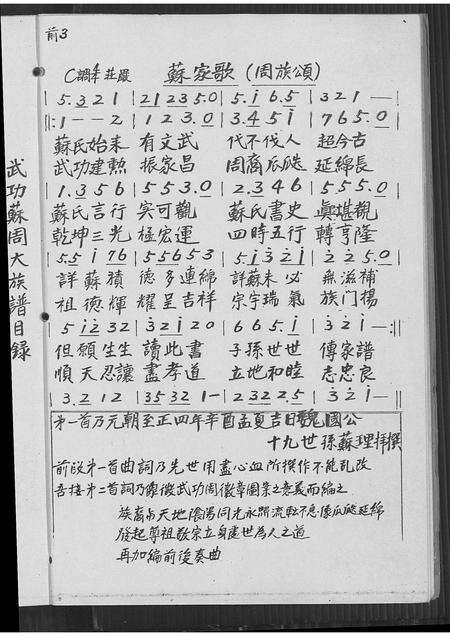 前3
C調 4/4 莊嚴 蘇家歌(周族頌)
5. 3 2 1 | 2 1 2 3 5. 0 | 5. i 6. 5 | 3 2 1 — |
‖: 1 — — 2 | 1 2 3. 0 | 3. 4 5 i | 7 6 5. 0 |
蘇氏始來 有文武 代不伐人 超今古
武功建勲 振家昌 周裔瓜瓞 延綿長
1. 3 5 6 | 5 5 3. 0 | 2. 3 4 6 | 5 5 5. 0 |
蘇氏言行 実可觀 蘇氏書史 眞堪觀
乾坤三光 極宏運 四時五行 轉亨隆
5. 5 i 7 6 | 5 5 6 5 3 | 5. i 3 2 i | 2 2 5. 0 |
詳蘇積 德多連綿 詳蘇未必 無滋補
祖德輝 耀呈吉祥 宗宇瑞氣 族门楊
5 i 2 3 2 | 3 2 i 2 0 | 6 6 5 i | 3 2 i — :‖
但願生生 讀此書 子孫世世 傳家譜
順天忍讓 盡孝道 立地和睦 志忠良
3. 2 1 2 | 3 5 3 2 1 — | 2 3 2 5 | 1 — — — ‖
第一首乃元朝至正四年辛酉孟夏吉日魏國公
十九世孫蘇理祥撰
前段第一首曲詞乃先世用盡心血所撰作不能乱改
吾接第二首詞乃像徵武功周徽章圖案之意義而編之
族裔与天地陰陽同光永照流転不息像瓜瓞延綿
發起尊祖敬宗立身處世為人之道
再加編前後奏曲
武功蘇周大族譜目錄